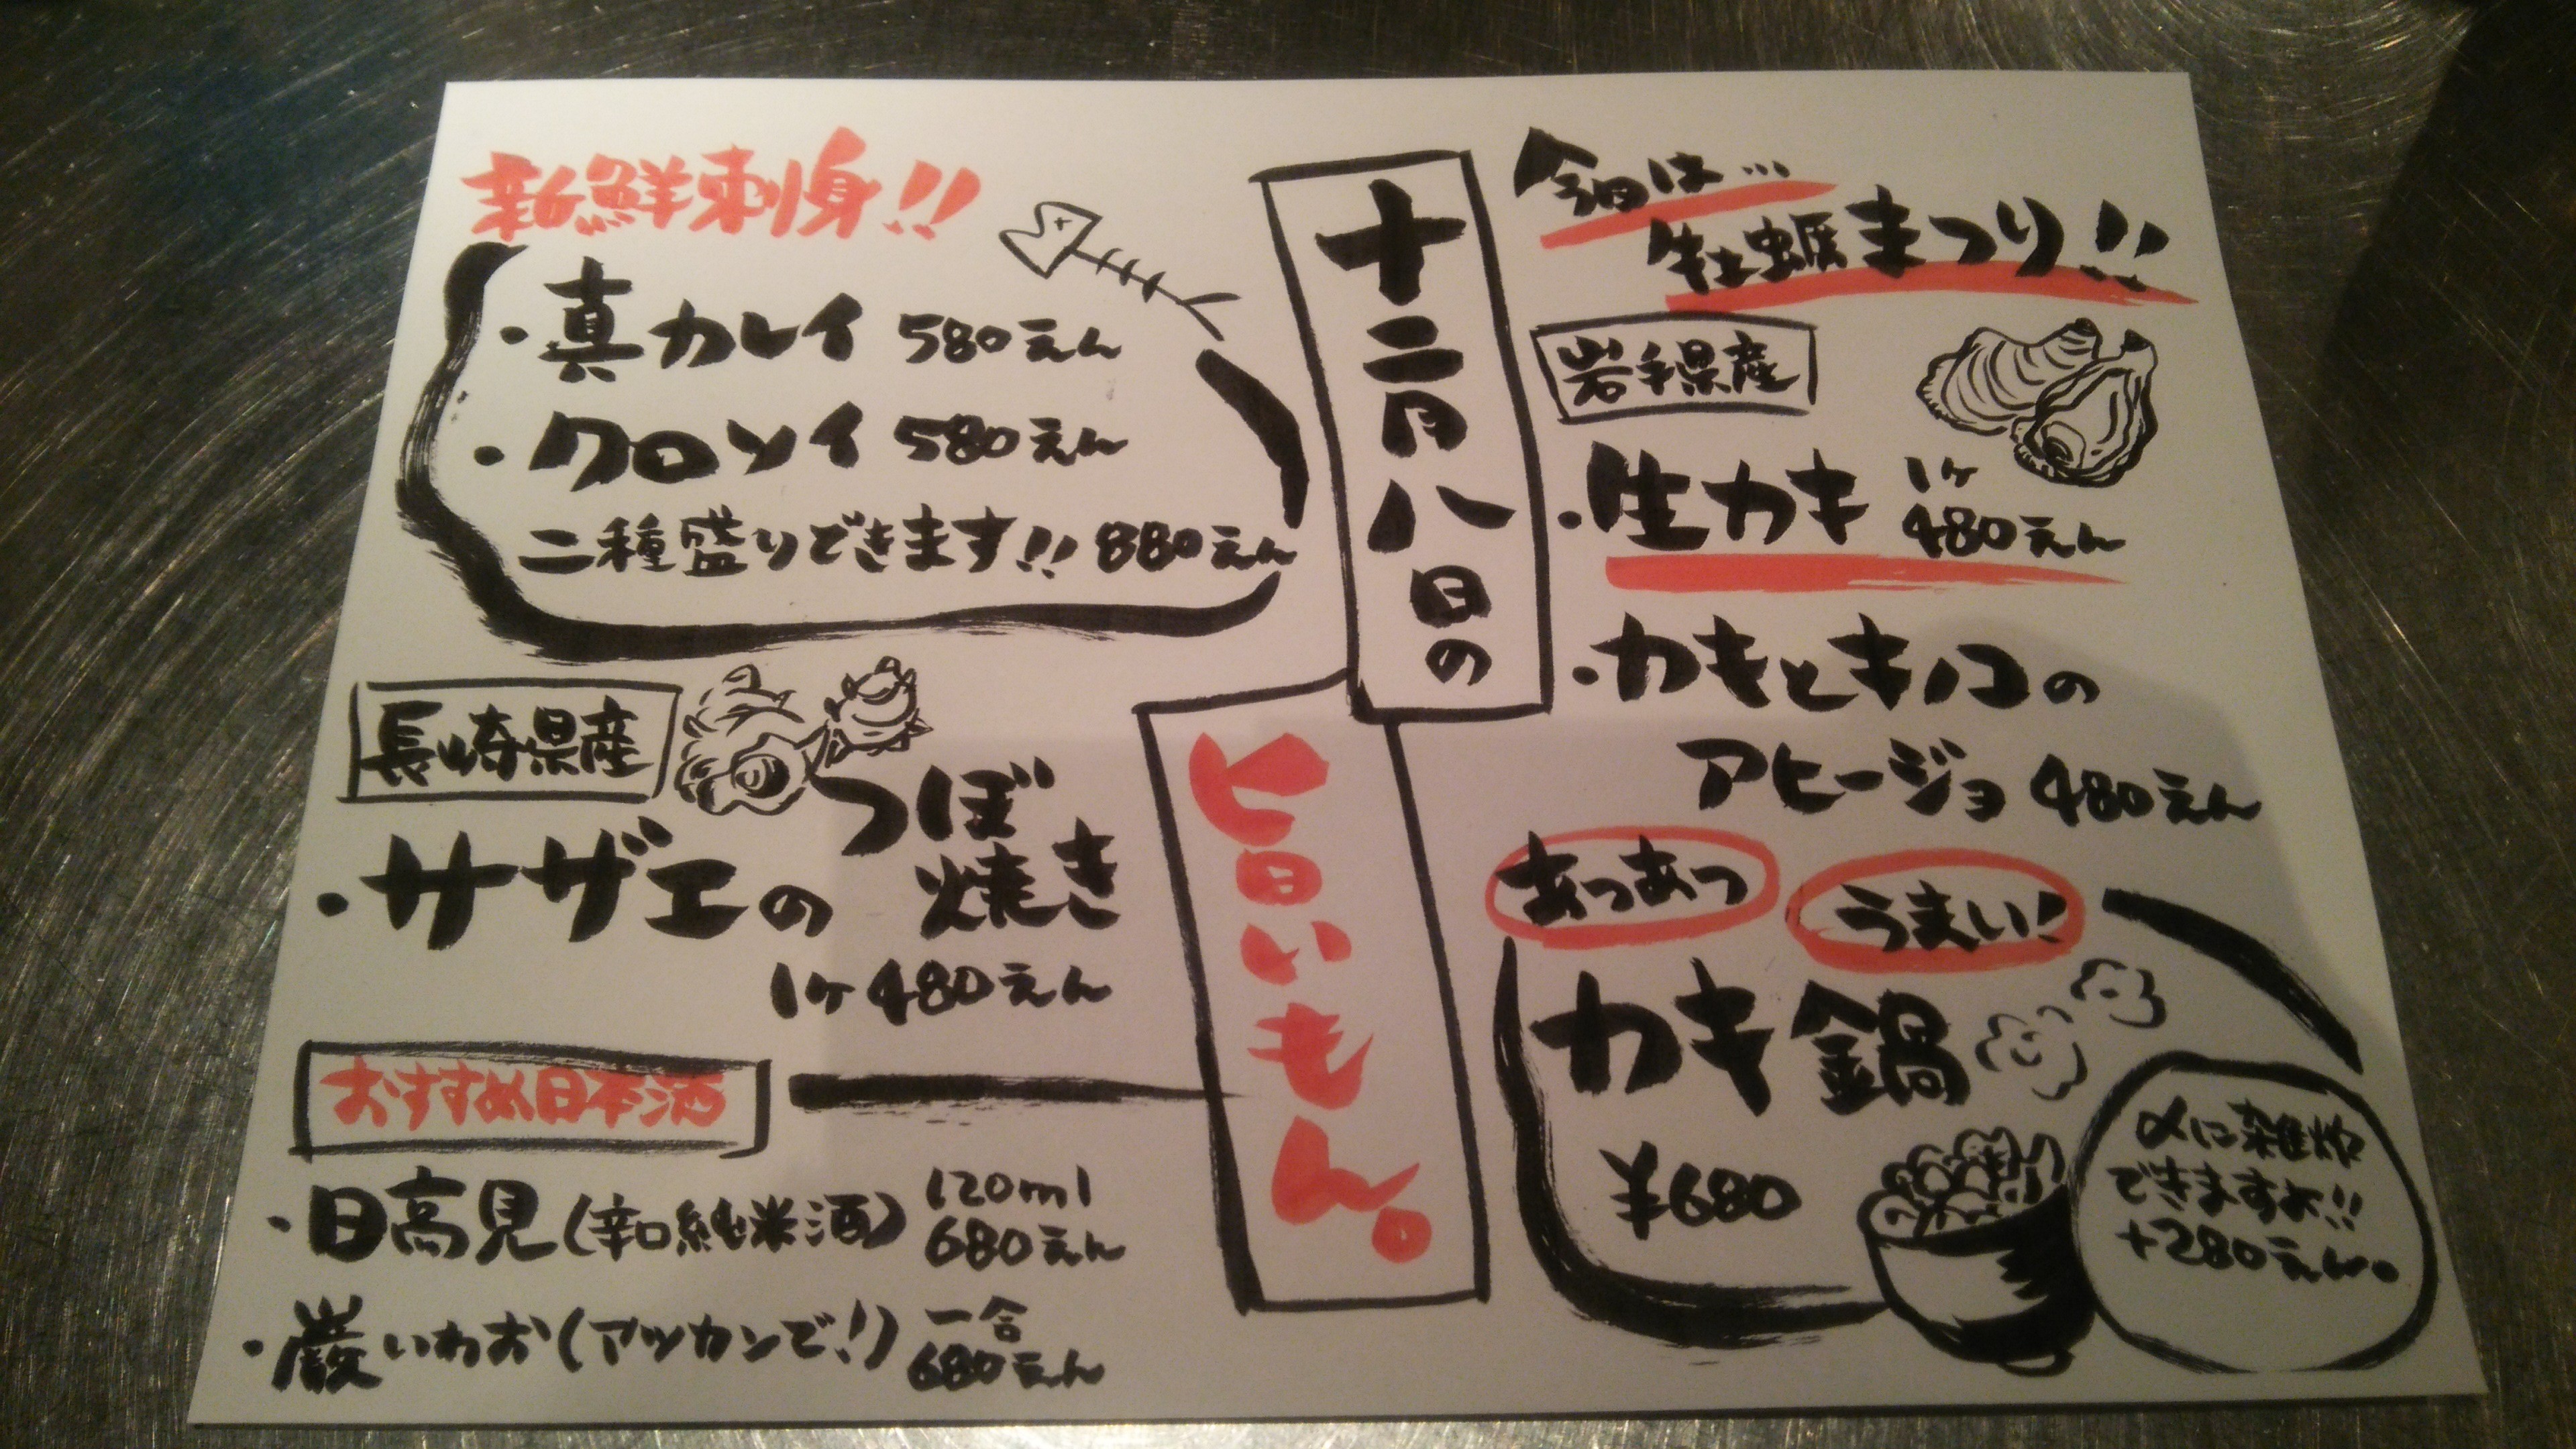 十二月八日の
旨いもん。
今旬は…
牡蠣まつり!!
岩手県産
・生カキ 1ヶ
480えん
・カキとキノコの
アヒージョ 480えん
あつあつ
うまい!
カキ鍋
¥680
〆に雑炊
できますよ!!
+280えん。
新鮮刺身!!
・真カレイ 580えん
・クロソイ 580えん
二種盛りできます!! 880えん
長崎県産
・サザエの つぼ
焼き
1ヶ 480えん
おすすめ日本酒
・日高見(辛口純米酒) 120ml
680えん
・巌いわお(アツカンで!) 一合
680えん